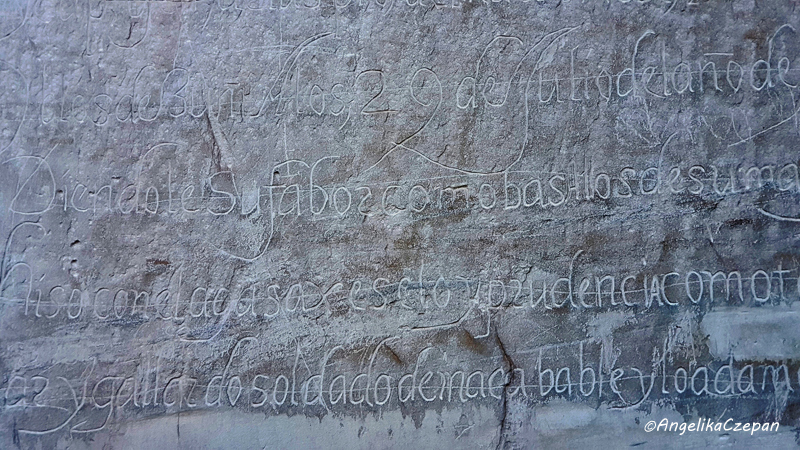 blos de Buñi A los, 29 de Julio del año de
Diendole Su fabor como basallos de su mag
hiso con el agasaxe selo y prudencia como t
ar y gallardo soldado de inacabable y loada m
©AngelikaCzepan